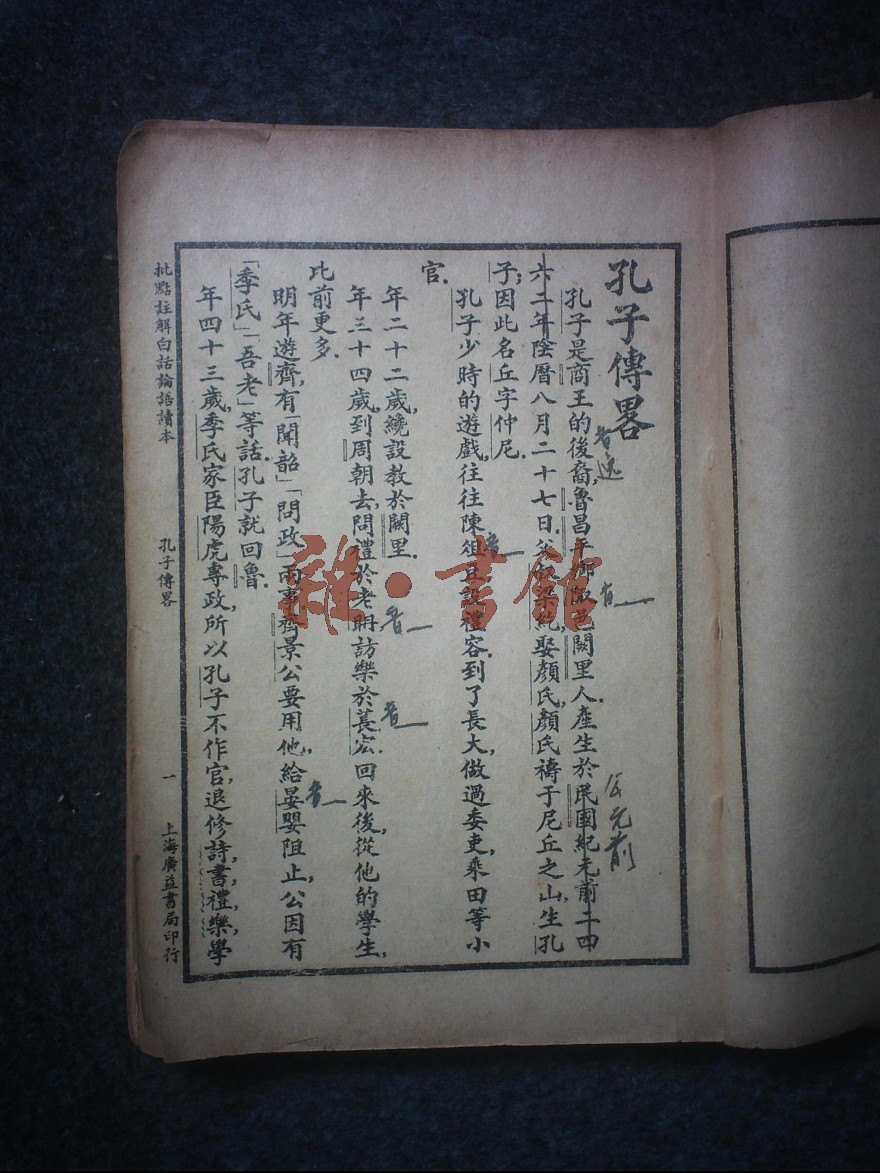 孔子傳畧
孔子是商王的後裔,魯昌平鄉陬邑闕里人.產生於民國紀元前二四
六二年陰曆八月二十七日.父叔梁紇,娶顏氏,顏氏禱于尼丘之山,生孔
子;因此名丘字仲尼.
孔子少時的遊戲,往往陳俎豆,設禮容.到了長大,做過委吏,乘田等小
官.
年二十二歲,纔設教於闕里.
年三十四歲,到周朝去,問禮於老聃,訪樂於萇宏.回來後,從他的學生,
比前更多.
明年遊齊,有「聞韶」「問政」兩事.齊景公要用他,給晏嬰阻止,公因有
「季氏」「吾老」等話.孔子就回魯.
年四十三歲,季氏家臣陽虎專政,所以孔子不作官,退修詩,書,禮,樂,學
批點註解白話論語讀本
孔子傳畧
一
上海廣益書局印行
公元前
雜·書館